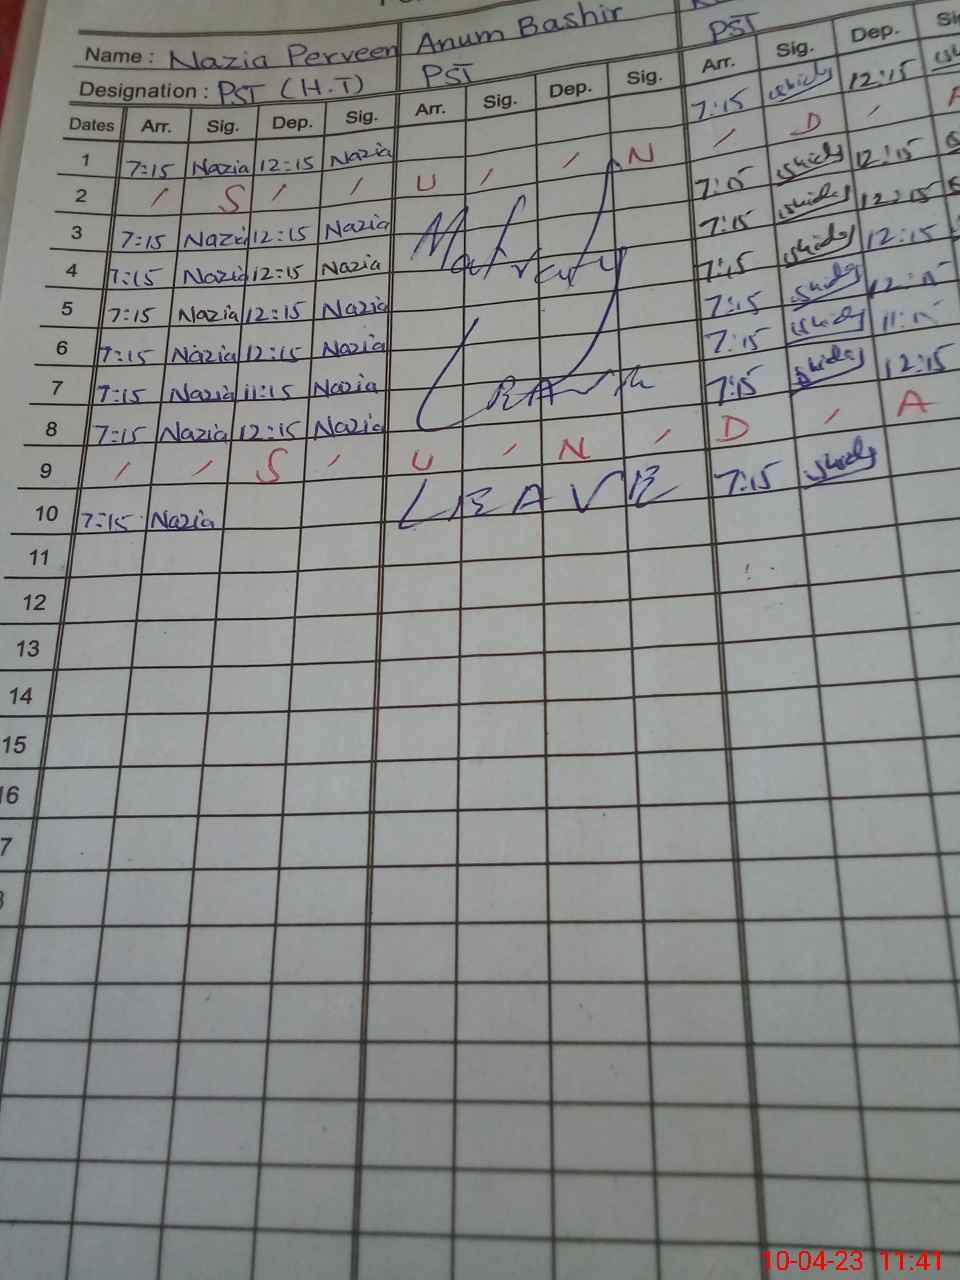 Name : Nazia Perveen Anum Bashir
Designation : PST (H.T) PST PST
Dates Arr. Sig. Dep. Sig. Arr. Sig. Dep. Sig. Arr. Sig. Dep.
7:15 12:15
1 7:15 Nazia 12:15 Nazia
2 / S / / U / / N / D / A
3 7:15 Nazia 12:15 Nazia 7:15 12:15
4 7:15 Nazia 12:15 Nazia 7:15 12:15
5 7:15 Nazia 12:15 Nazia 7:15 12:15
6 7:15 Nazia 12:15 Nazia 7:15
7 7:15 Nazia 11:15 Nazia 7:15
8 7:15 Nazia 12:15 Nazia 7:15 12:15
9 / / S / U / N / D / A
10 7:15 Nazia LEAVE 7:15
11
12
13
14
15
16
10-04-23 11:41